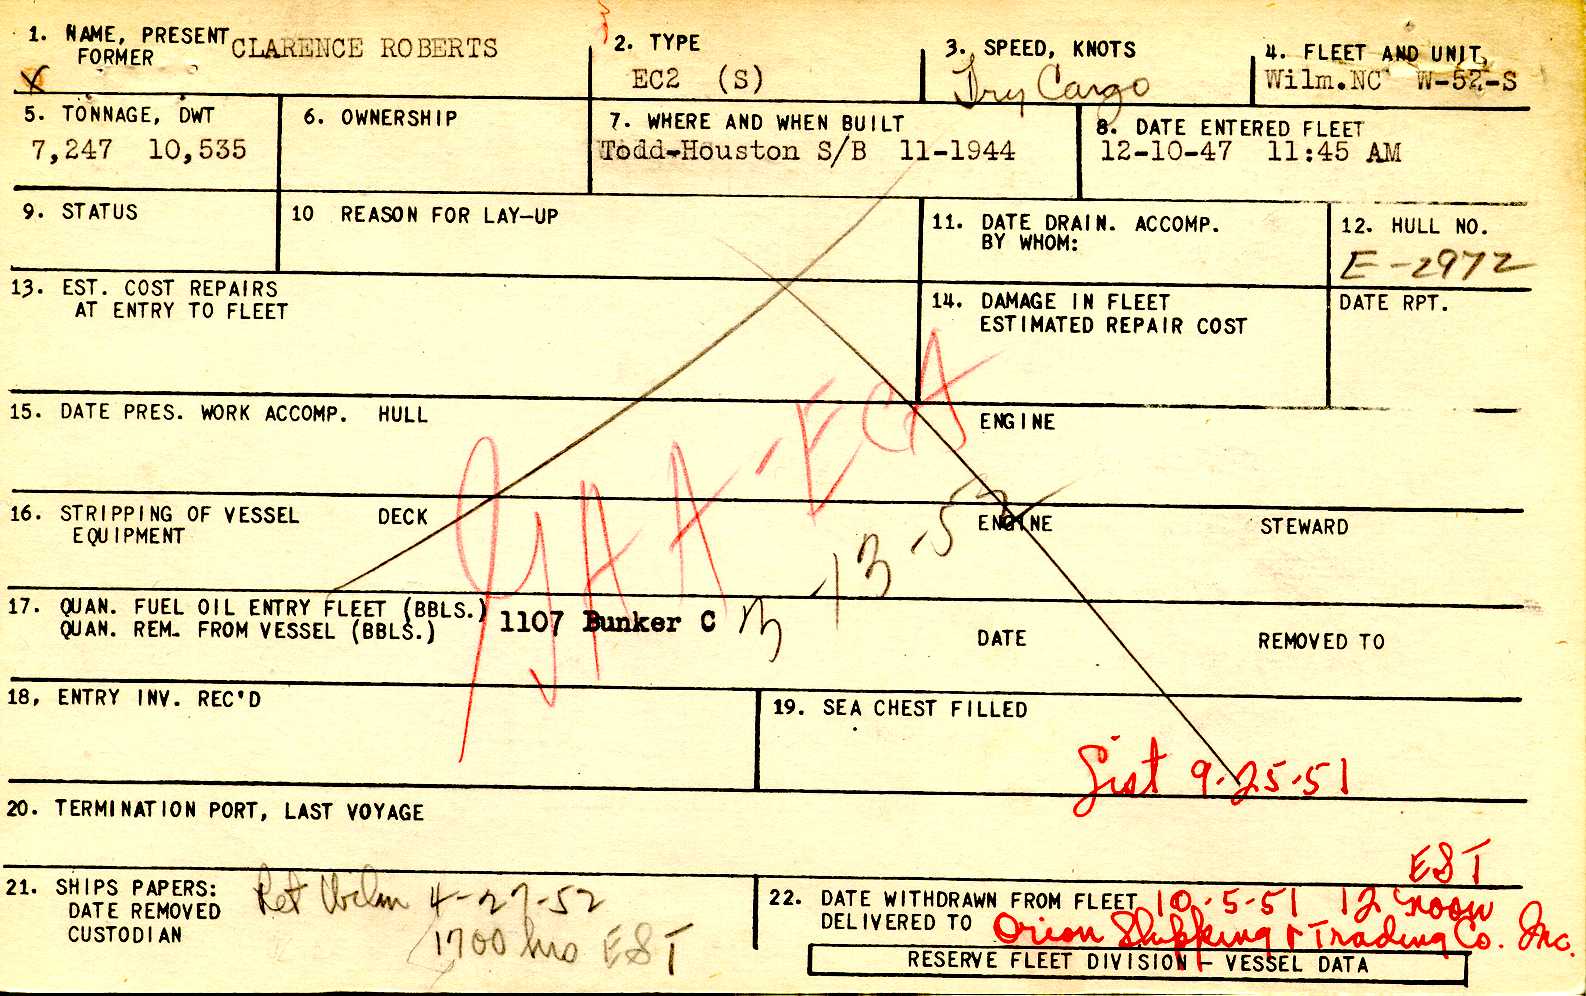 1. NAME, PRESENT CLARENCE ROBERTS
FORMER
X
2. TYPE
EC2 (S)
3. SPEED, KNOTS
Dry Cargo
4. FLEET AND UNIT
Wilm.NC W-52-S
5. TONNAGE, DWT
7,247 10,535
6. OWNERSHIP
7. WHERE AND WHEN BUILT
Todd-Houston S/B 11-1944
8. DATE ENTERED FLEET
12-10-47 11:45 AM
9. STATUS
10 REASON FOR LAY-UP
11. DATE DRAIN. ACCOMP.
BY WHOM:
12. HULL NO.
E-2972
13. EST. COST REPAIRS
AT ENTRY TO FLEET
14. DAMAGE IN FLEET
ESTIMATED REPAIR COST
DATE RPT.
15. DATE PRES. WORK ACCOMP. HULL
ENGINE
16. STRIPPING OF VESSEL DECK
EQUIPMENT
ENGINE
STEWARD
GAA-ECA
3-13-53
17. QUAN. FUEL OIL ENTRY FLEET (BBLS.) 1107 Bunker C
QUAN. REM. FROM VESSEL (BBLS.)
DATE
REMOVED TO
18, ENTRY INV. REC'D
19. SEA CHEST FILLED
Gist 9-25-51
20. TERMINATION PORT, LAST VOYAGE
21. SHIPS PAPERS: Ret Wilm 4-27-52
DATE REMOVED
CUSTODIAN
1700 hrs EST
EST
22. DATE WITHDRAWN FROM FLEET 10-5-51 12 noon
DELIVERED TO Orion Shipping & Trading Co. Inc.
RESERVE FLEET DIVISION - VESSEL DATA